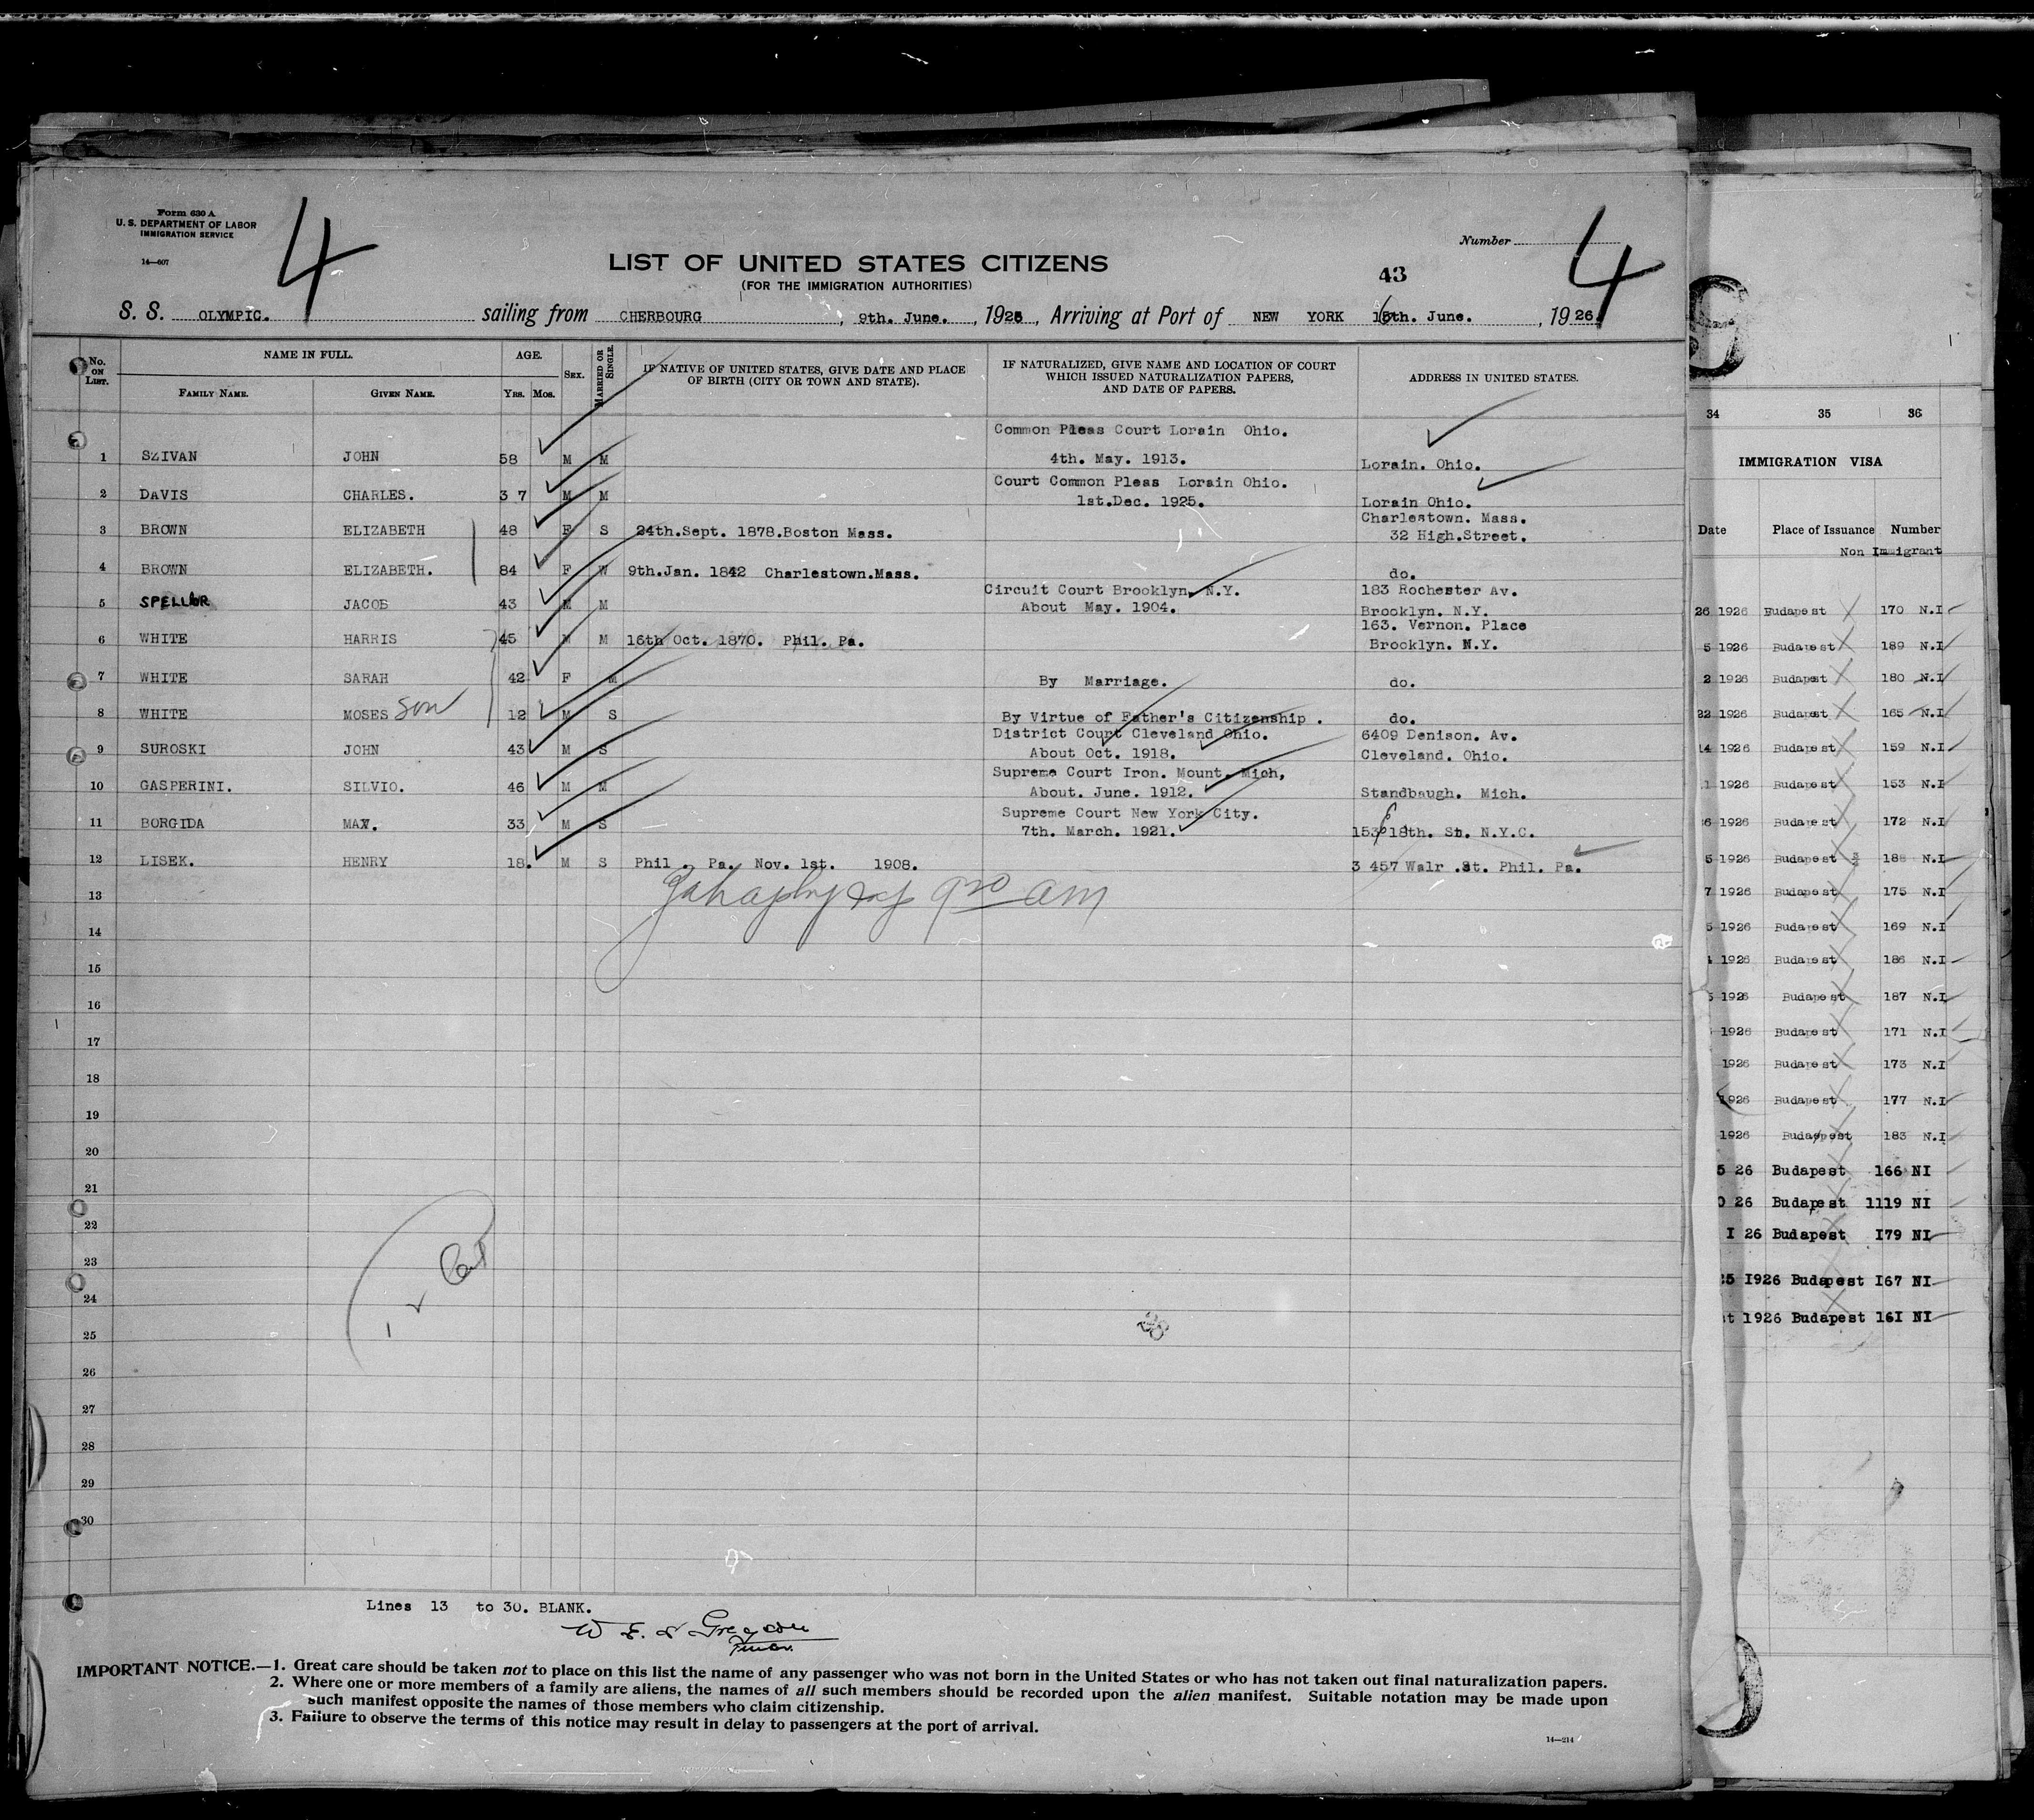 Form 630 A
U. S. DEPARTMENT OF LABOR
IMMIGRATION SERVICE
14—607
4
LIST OF UNITED STATES CITIZENS
(FOR THE IMMIGRATION AUTHORITIES)
Number
43
4
S. S. OLYMPIC. sailing from CHERBOURG, 9th. June., 1926, Arriving at Port of NEW YORK 16th. June., 1926.
No. ON LIST. NAME IN FULL. AGE. SEX. MARRIED OR SINGLE. IF NATIVE OF UNITED STATES, GIVE DATE AND PLACE OF BIRTH (CITY OR TOWN AND STATE). IF NATURALIZED, GIVE NAME AND LOCATION OF COURT WHICH ISSUED NATURALIZATION PAPERS, AND DATE OF PAPERS. ADDRESS IN UNITED STATES.
FAMILY NAME. GIVEN NAME. YRS. MOS.
Common Pleas Court Lorain Ohio.
1 SZIVAN JOHN 58 M M 4th. May. 1913. Lorain. Ohio.
Court Common Pleas Lorain Ohio.
2 DAVIS CHARLES. 3 7 M M 1st.Dec. 1925. Lorain Ohio.
Charlestown. Mass.
3 BROWN ELIZABETH 48 F S 24th.Sept. 1878.Boston Mass. 32 High.Street.
4 BROWN ELIZABETH. 84 F W 9th.Jan. 1842 Charlestown.Mass. do.
Circuit Court Brooklyn. N.Y. 183 Rochester Av.
5 JACOB 43 M M About May. 1904. Brooklyn. N.Y.
163. Vernon. Place
6 WHITE HARRIS 45 M M 16th Oct. 1870. Phil. Pa. Brooklyn. N.Y.
7 WHITE SARAH 42 F M By Marriage. do.
8 WHITE MOSES son 12 M S By Virtue of Father's Citizenship . do.
District Court Cleveland Ohio. 6409 Denison. Av.
9 SUROSKI JOHN 43 M S About Oct. 1918. Cleveland. Ohio.
Supreme Court Iron. Mount. Mich,
10 GASPERINI. SILVIO. 46 M M About. June. 1912. Standbaugh. Mich.
Supreme Court New York City.
11 BORGIDA MAX. 33 M S 7th. March. 1921. 153 E 18th. St. N.Y.C.
12 LISEK. HENRY 18. M S Phil . Pa. Nov. 1st. 1908. 3 457 Walr .St. Phil. Pa.
9 30 am
13
14
15
16
17
18
19
20
21
22
23
24
25
26
27
28
29
30
Lines 13 to 30. BLANK.
IMPORTANT NOTICE.—1. Great care should be taken not to place on this list the name of any passenger who was not born in the United States or who has not taken out final naturalization papers.
2. Where one or more members of a family are aliens, the names of all such members should be recorded upon the alien manifest. Suitable notation may be made upon
such manifest opposite the names of those members who claim citizenship.
3. Failure to observe the terms of this notice may result in delay to passengers at the port of arrival.
14—214
34 35 36
IMMIGRATION VISA
Date Place of Issuance Number
Non Immigrant
26 1926 Budapest 170 N.I
5 1926 Budapest 189 N.I
2 1926 Budapest 180 N.I
22 1926 Budapest 165 N.I
14 1926 Budapest 159 N.I
1 1926 Budapest 153 N.I
6 1926 Budapest 172 N.I
5 1926 Budapest 188 N.I
7 1926 Budapest 175 N.I
5 1926 Budapest 169 N.I
1926 Budapest 186 N.I
5 1926 Budapest 187 N.I
1926 Budapest 171 N.I
1926 Budapest 173 N.I
1926 Budapest 177 N.I
1926 Budapest 183 N.I
5 26 Budapest 166 NI
0 26 Budapest 1119 NI
I 26 Budapest I79 NI
25 I926 Budapest I67 NI
st 1926 Budapest 16I NI